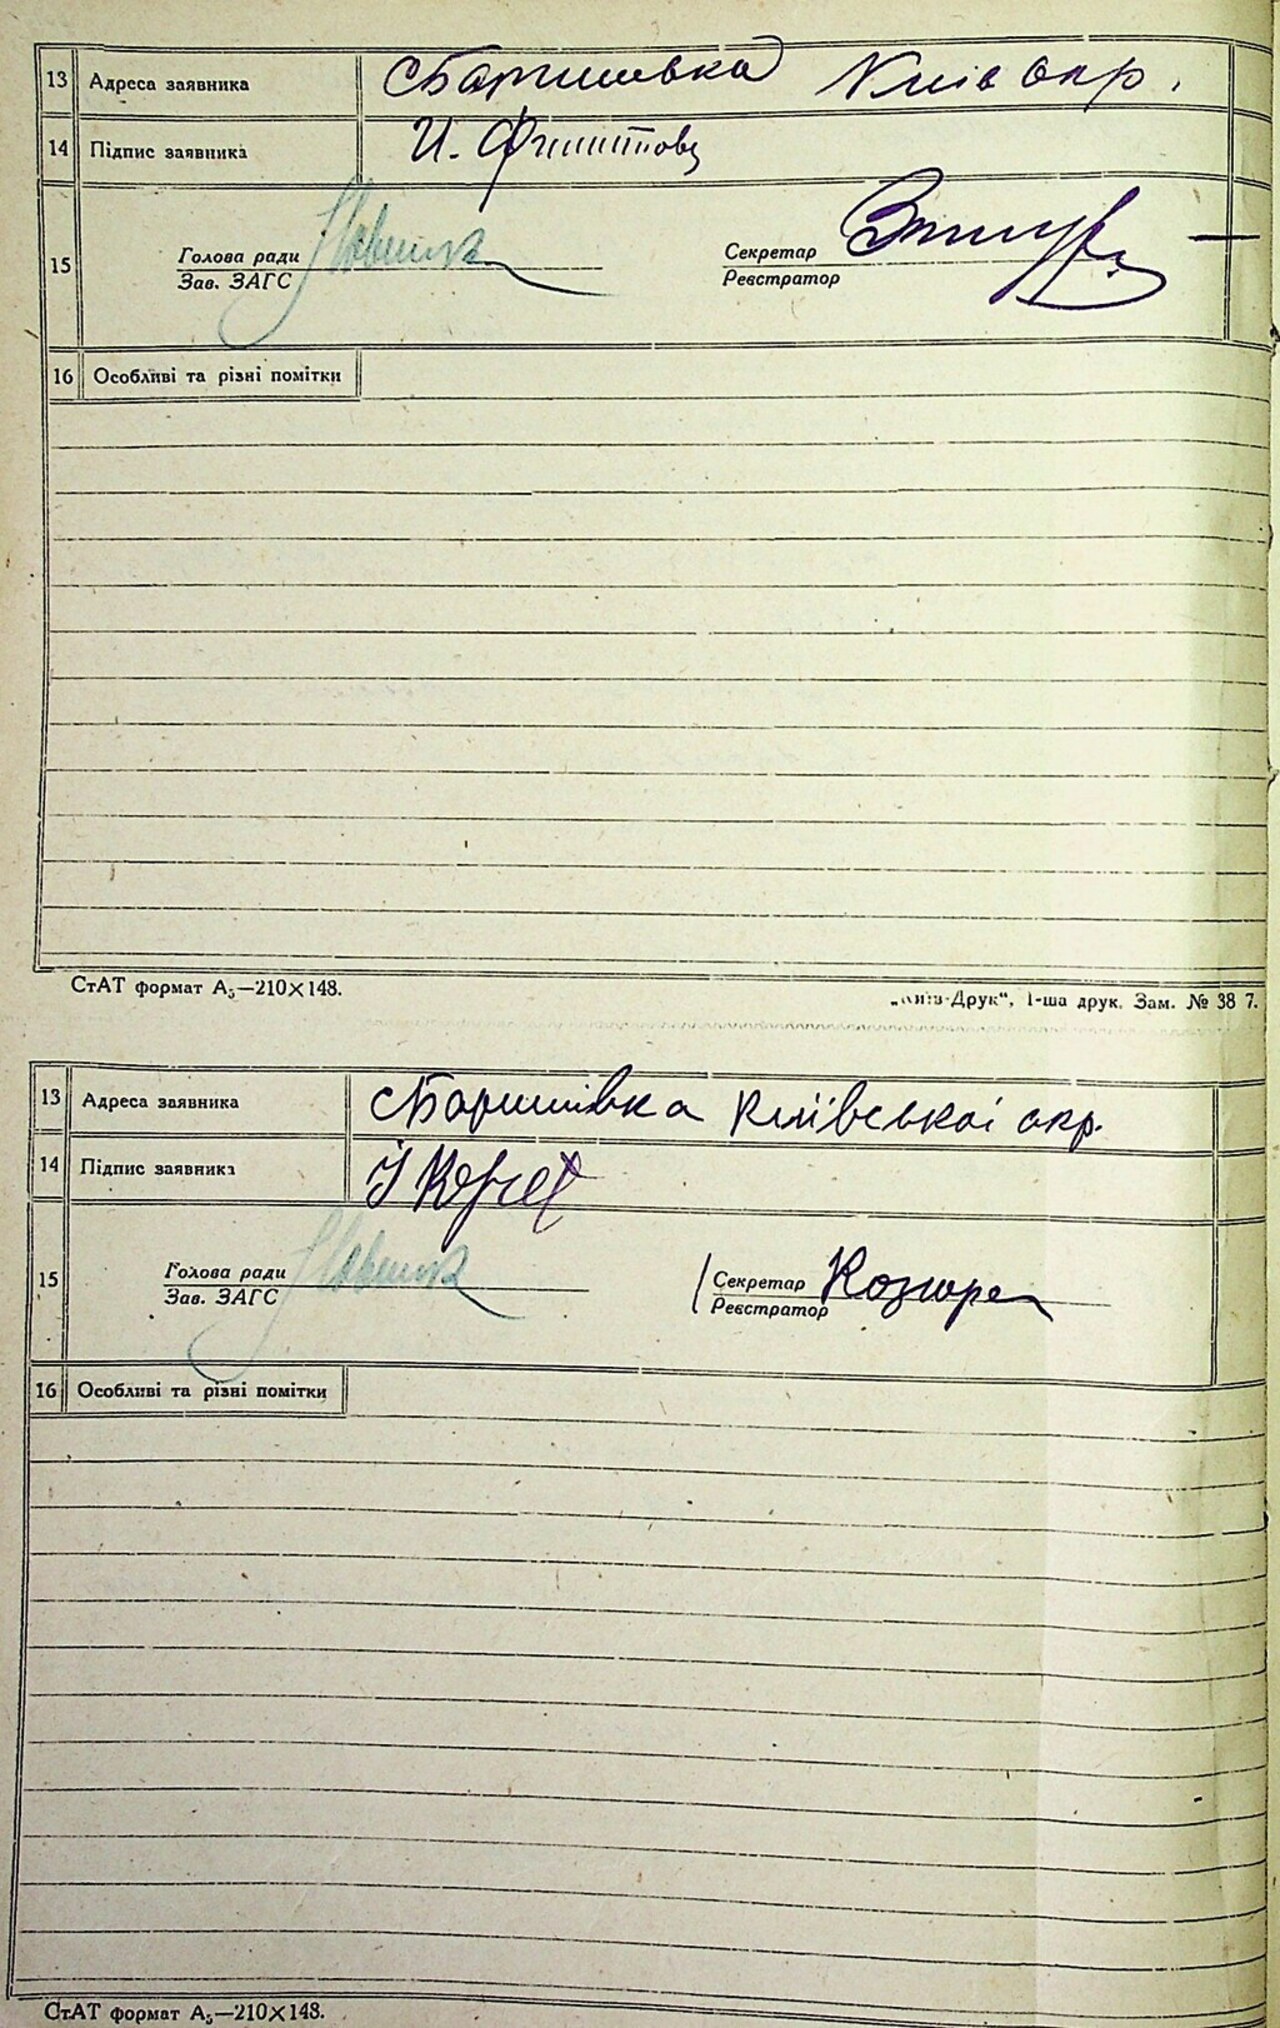 13 Адреса заявника с Баришевка Київ окр.
14 Підпис заявника И.
15 Голова ради Секретар
Зав. ЗАГС Реєстратор
16 Особливі та різні помітки
СтАТ формат А₅—210×148.
„Київ-Друк“, 1-ша друк. Зам. № 38 7.
13 Адреса заявника с Баришівка Київської окр.
14 Підпис заявника
15 Голова ради Секретар
Зав. ЗАГС Реєстратор
16 Особливі та різні помітки
СтАТ формат А₅—210×148.